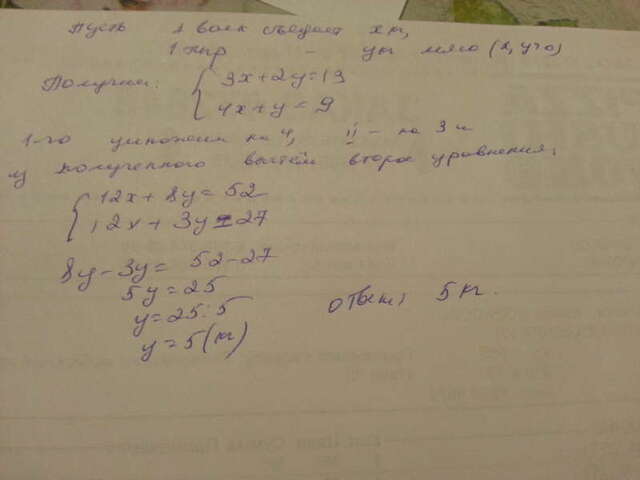 Пусть 1 волк съедает x кг,
1 тигр – y кг мяса (x, y>0)
Получим: { 3x+2y=13
4x+y=9
1-го умножим на 4, II – на 3 и
из полученного вычтем второе уравнения.
{ 12x+8y=52
12x+3y=27
8y-3y=52-27
5y=25
y=25:5
y=5(кг)
ответ: 5 кг.